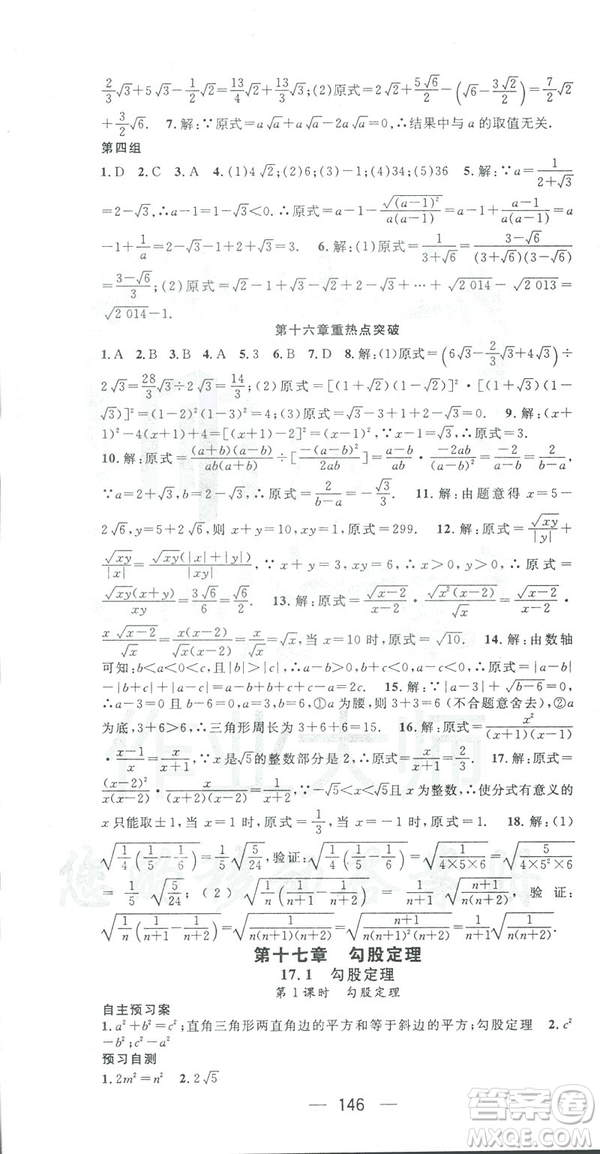 2/3√3+5√3-1/2√2=13/4√2+17/3√3;(2)原式=2√2+5√6/2-(√6-3√2/2)=7/2√2
+3/2√6. 7.解:∵原式=a√a+a-a√a=a,∴结果中与a的取值无关.
第四组
1.D 2.C 3.A 4.(1)4√2;(2)6;(3)-1;(4)34;(5)36 5.解:∵a=1/(2+√3)
=2-√3,∴a-1=1-√3<0. 原式=(a-1)²/(a-1)-√(a-1)²/(a(a-1))=a-1+(a-1)/(a(a-1))=a
-1+1/a=2-√3-1+2+√3=3. 6.解:(1)原式=1/(3+√6)=(3-√6)/((3+√6)(3-√6))
=(3-√6)/3;(2)原式=√2-1+√3-√2+√4-√3+…+√2 014-√2 013=
√2 014-1.
第十六章重热点突破
1.A 2.B 3.C 4.A 5.3 6.B 7.B 8.解:(1)原式=(6√3-2/3√3+4√3)÷
2√3=28/3√3÷2√3=14/3;(2)原式=[(1+√2)(1-√2)]²·[(1+√3)(1-
√3)]²=(1-2)²·(1-3)²=(-1)²·(-2)²=1×4=4. 9.解:(x+
1)²-4(x+1)+4=[(x+1)-2]²=(x-1)²,当x=√3+1时,原式=3.
10.解:原式=(a+b)(a-b)/(ab(a+b))÷[-(a-b)²/2ab]=(a-b)/ab·[-2ab/(a-b)²]=-2/(a-b)=2/(b-a),
∵a=2+√3,b=2-√3,∴原式=2/(b-a)=-√3/3. 11.解:由题意得x=5-
2√6,y=5+2√6,则x+y=10,xy=1,∴原式=299. 12.解:原式=√xy/|y|+
√xy/|x|=√xy(|x|+|y|)/|xy|,∵x+y=3,xy=6,∴x>0,y>0,∴原式=
√xy(x+y)/xy=3√6/6=√6/2. 13.解:原式=√(x-2)/√x÷√(x-2)/(x√(x-2))=√(x-2)/√x·
x√(x-2)/√(x-2)=x√(x-2)/(√x√(x-2))=x/√x=√x,当x=10时,原式=√10. 14.解:由数轴
可知:b<a<0<c,且|b|>|c|,∴a-b>0,b+c<0,∴原式=|a|-|a-b|-
|b+c|=-a-a+b+b+c=-2a+2b+c. 15.解:∵|a-3|+√(b-6)=0,|a-
3|≥0,√(b-6)≥0,∴a-3=0,b-6=0,∴a=3,b=6,①a为腰,则3+3=6(不合题意舍去),②a
为底,3+6>6,∴三角形周长为3+6+6=15. 16.解:原式=x²/(x(x-2))
·(x-1)/x²=(x-1)/(x(x-2)),∵√5的整数部分是2,∴-√2<x<√5,∵x为整数,∴使分式有意义的
x只能取±1,当x=-1时,原式=-2/3. 17.(1)
√(1/4(1/5-1/6))=1/5√(5/24),验证:√(1/4(1/5-1/6))=√(1/(4×5×6))=√(5/(4×5²×6))
=1/5√(5/24);(2)√(1/n(1/(n+1)-1/(n+2)))=1/(n+1)√((n+1)/(n(n+2))),验证:
√(1/n(1/(n+1)-1/(n+2)))=√(1/(n(n+1)(n+2)))=√((n+1)/(n(n+1)²(n+2)))=1/(n+1)√((n+1)/(n(n+2)))
第十七章 勾股定理
17.1 勾股定理
第1课时 勾股定理
自主预习案
1.a²+b²=c²;直角三角形两直角边的平方和等于斜边的平方;勾股定理 2.c²
-b²;c²-a²
预习自测
1.2m²=n² 2.2√5
146
答案卷